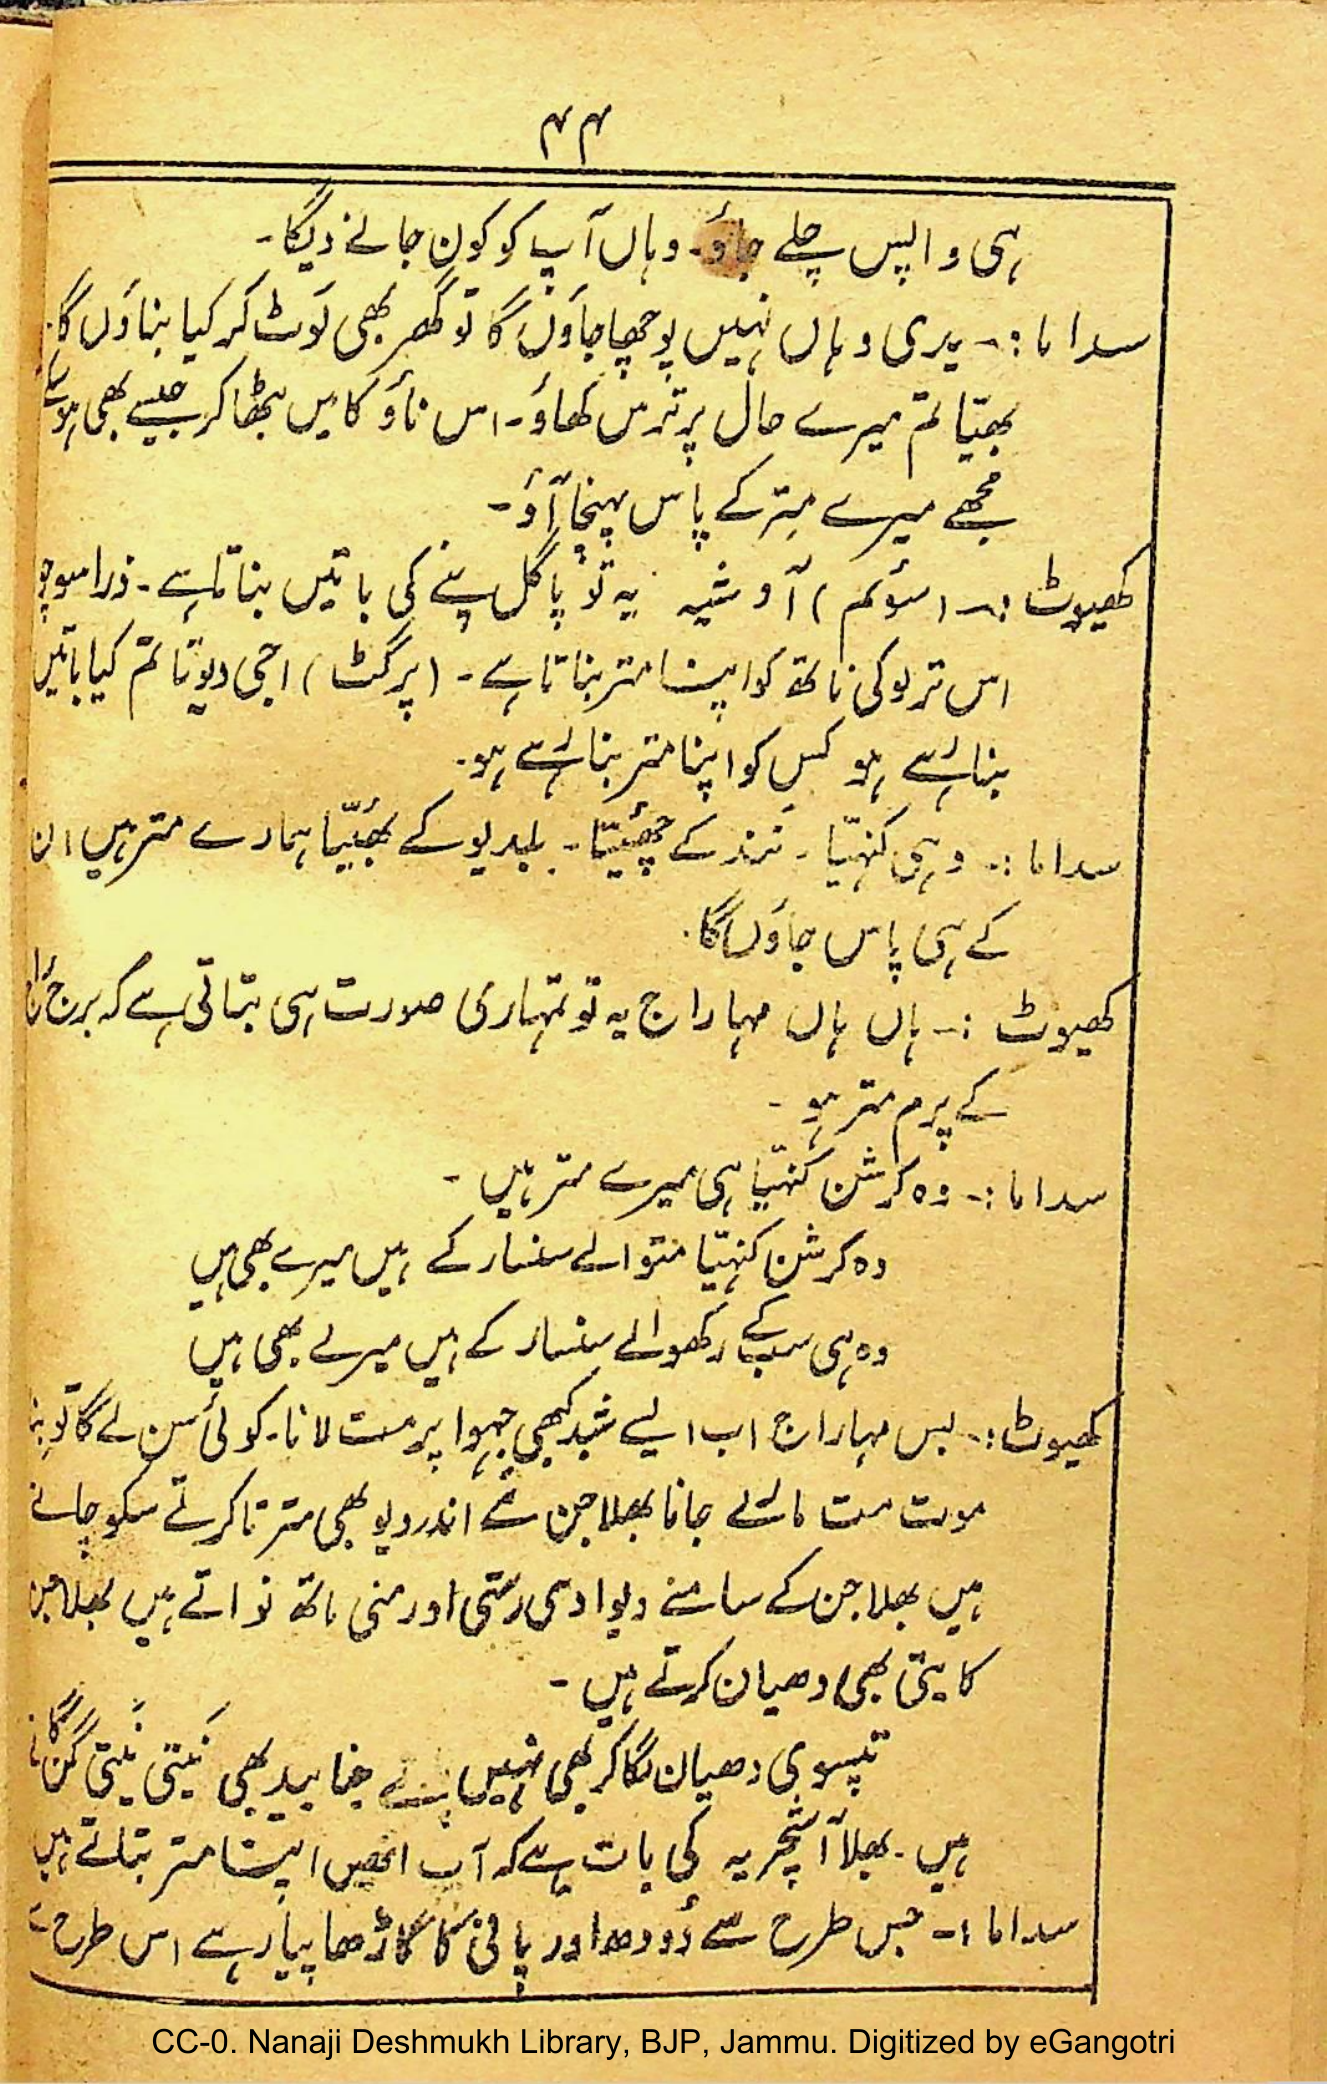 ۴۴
ہی واپس چلے جاؤ۔ وہاں آپ کو کون جانے دیگا۔
سداما :۔ یدی وہاں نہیں پوچھا جاؤں گا تو گھر بھی لوٹ کر کیا بناؤں گا۔
بھیّا تم میرے حال پر ترس کھاؤ۔ اس ناؤ کا میں بٹھا کر جیسے بھی ہو سکے
مجھے میرے متر کے پاس پہنچا آؤ۔
کھیوٹ :۔ (سوئم) آوشیہ یہ تو پاگل پنے کی باتیں بناتا ہے۔ ذرا سوچو
اس ترلوکی ناتھ کو اپنا متر بناتا ہے۔ (پرگٹ) اجی دیوتا تم کیا باتیں
بنا رہے ہو کس کو اپنا متر بنا رہے ہو۔
سداما :۔ وہی کنہیّا۔ نند کے چھیّا۔ بلدیو کے بھیّا ہمارے متر ہیں ان
کے ہی پاس جاؤں گا۔
کھیوٹ :۔ ہاں ہاں مہاراج یہ تو تمہاری صورت ہی بتاتی ہے کہ برج راج
کے پرم متر ہو۔
سداما :۔ وہ کرشن کنہیّا ہی میرے متر ہیں۔
وہ کرشن کنہیّا متوالے سنسار کے ہیں میرے بھی ہیں
وہ ہی سب کے رکھوالے سنسار کے ہیں میرے بھی ہیں
کھیوٹ :۔ بس مہاراج اب ایسے شبد کبھی جہوا پر مت لانا۔ کوئی سن لے گا تو بنا
موت مت مارے جانا بھلا جن سے اندر دیو بھی مترتا کرتے سکوچاتے
ہیں بھلا جن کے سامنے دیوا دی رشی اور منی ماتھ نواتے ہیں بھلا جن
کا یتی بھی دھیان کرتے ہیں۔
تپسوی دھیان لگا کر بھی نہیں بید بھی نیتی نیتی گن گاتا
ہیں۔ بھلا آشچریہ کی بات ہے کہ آپ انھیں اپنا متر بتاتے ہیں
سداما :۔ جس طرح سے دُودھ اور پانی کا گاڑھا پیار ہے اس طرح سے
CC-0. Nanaji Deshmukh Library, BJP, Jammu. Digitized by eGangotri